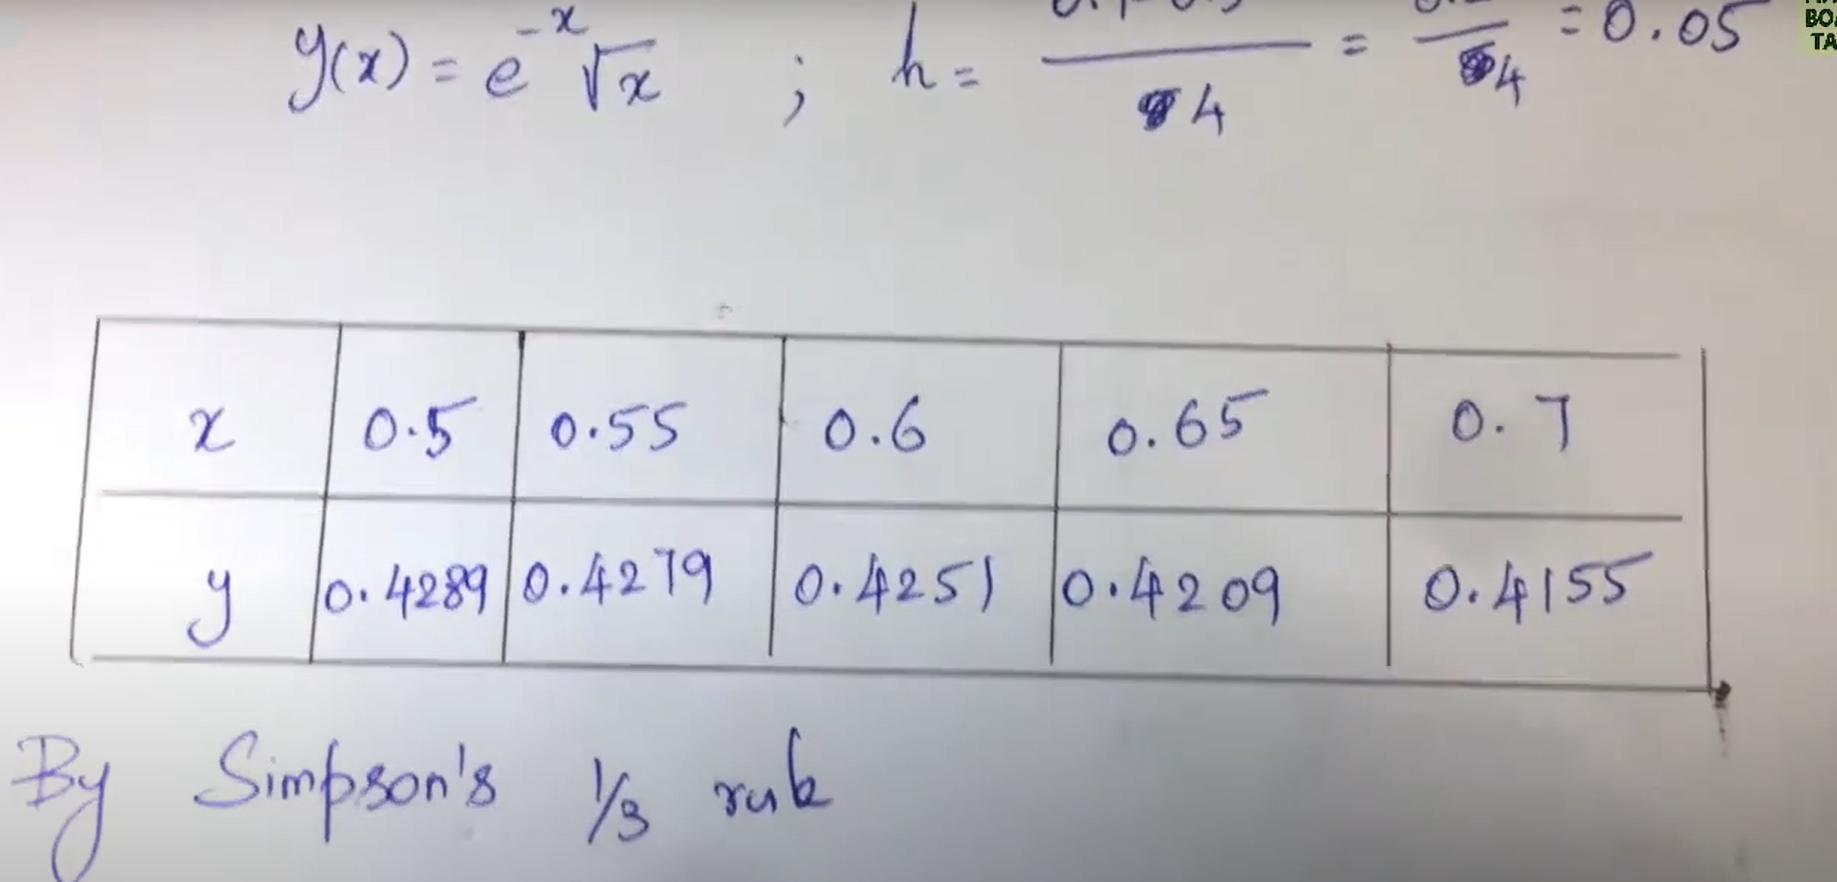 y(x) = e^{-x} √x ; h = /4 = /4 = 0.05
x 0.5 0.55 0.6 0.65 0.7
y 0.4289 0.4279 0.4251 0.4209 0.4155
By Simpson's 1/3 rule